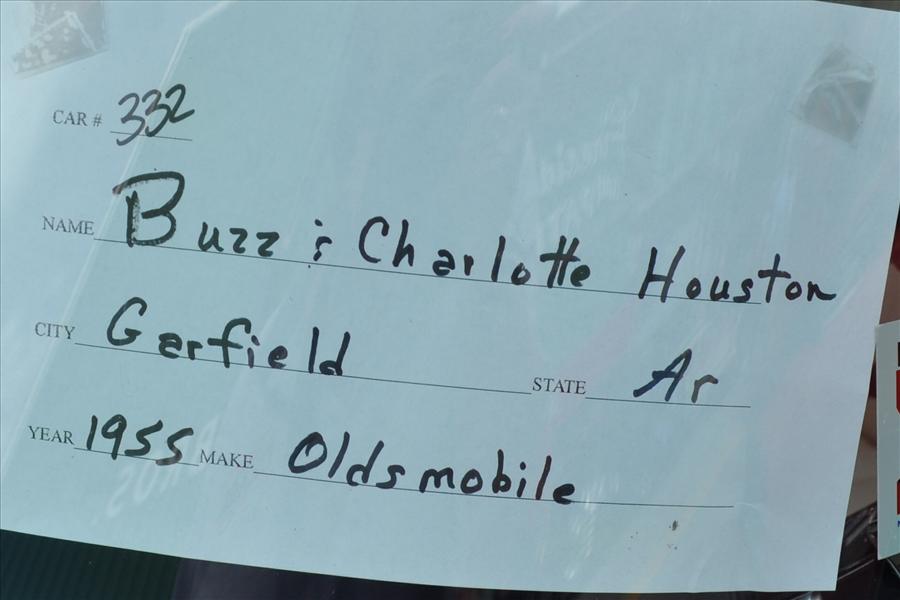 CAR # 332
NAME Buzz & Charlotte Houston
CITY Garfield STATE Ar
YEAR 1955 MAKE Oldsmobile